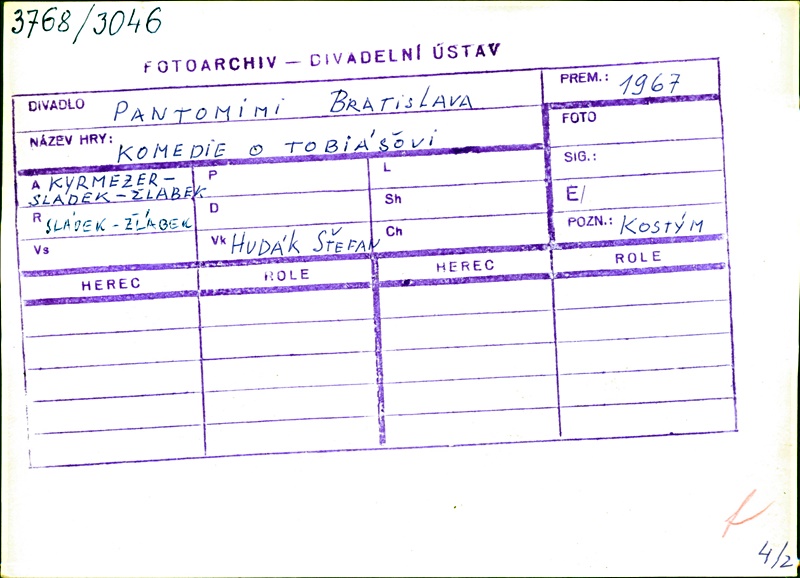 3768/3046
FOTOARCHIV — DIVADELNÍ ÚSTAV
DIVADLO PANTOMIMI BRATISLAVA
PREM.: 1967
NÁZEV HRY: KOMEDIE O TOBIÁŠOVI
FOTO
A KYRMEZER-
SLÁDEK-ŽLÁBEK
P
L
SIG.:
R SLÁDEK-ŽLÁBEK
D
Sh
E/
Vs
Vk HUDÁK ŠTEFAN
Ch
POZN.: KOSTÝM
HEREC ROLE HEREC ROLE
4/2